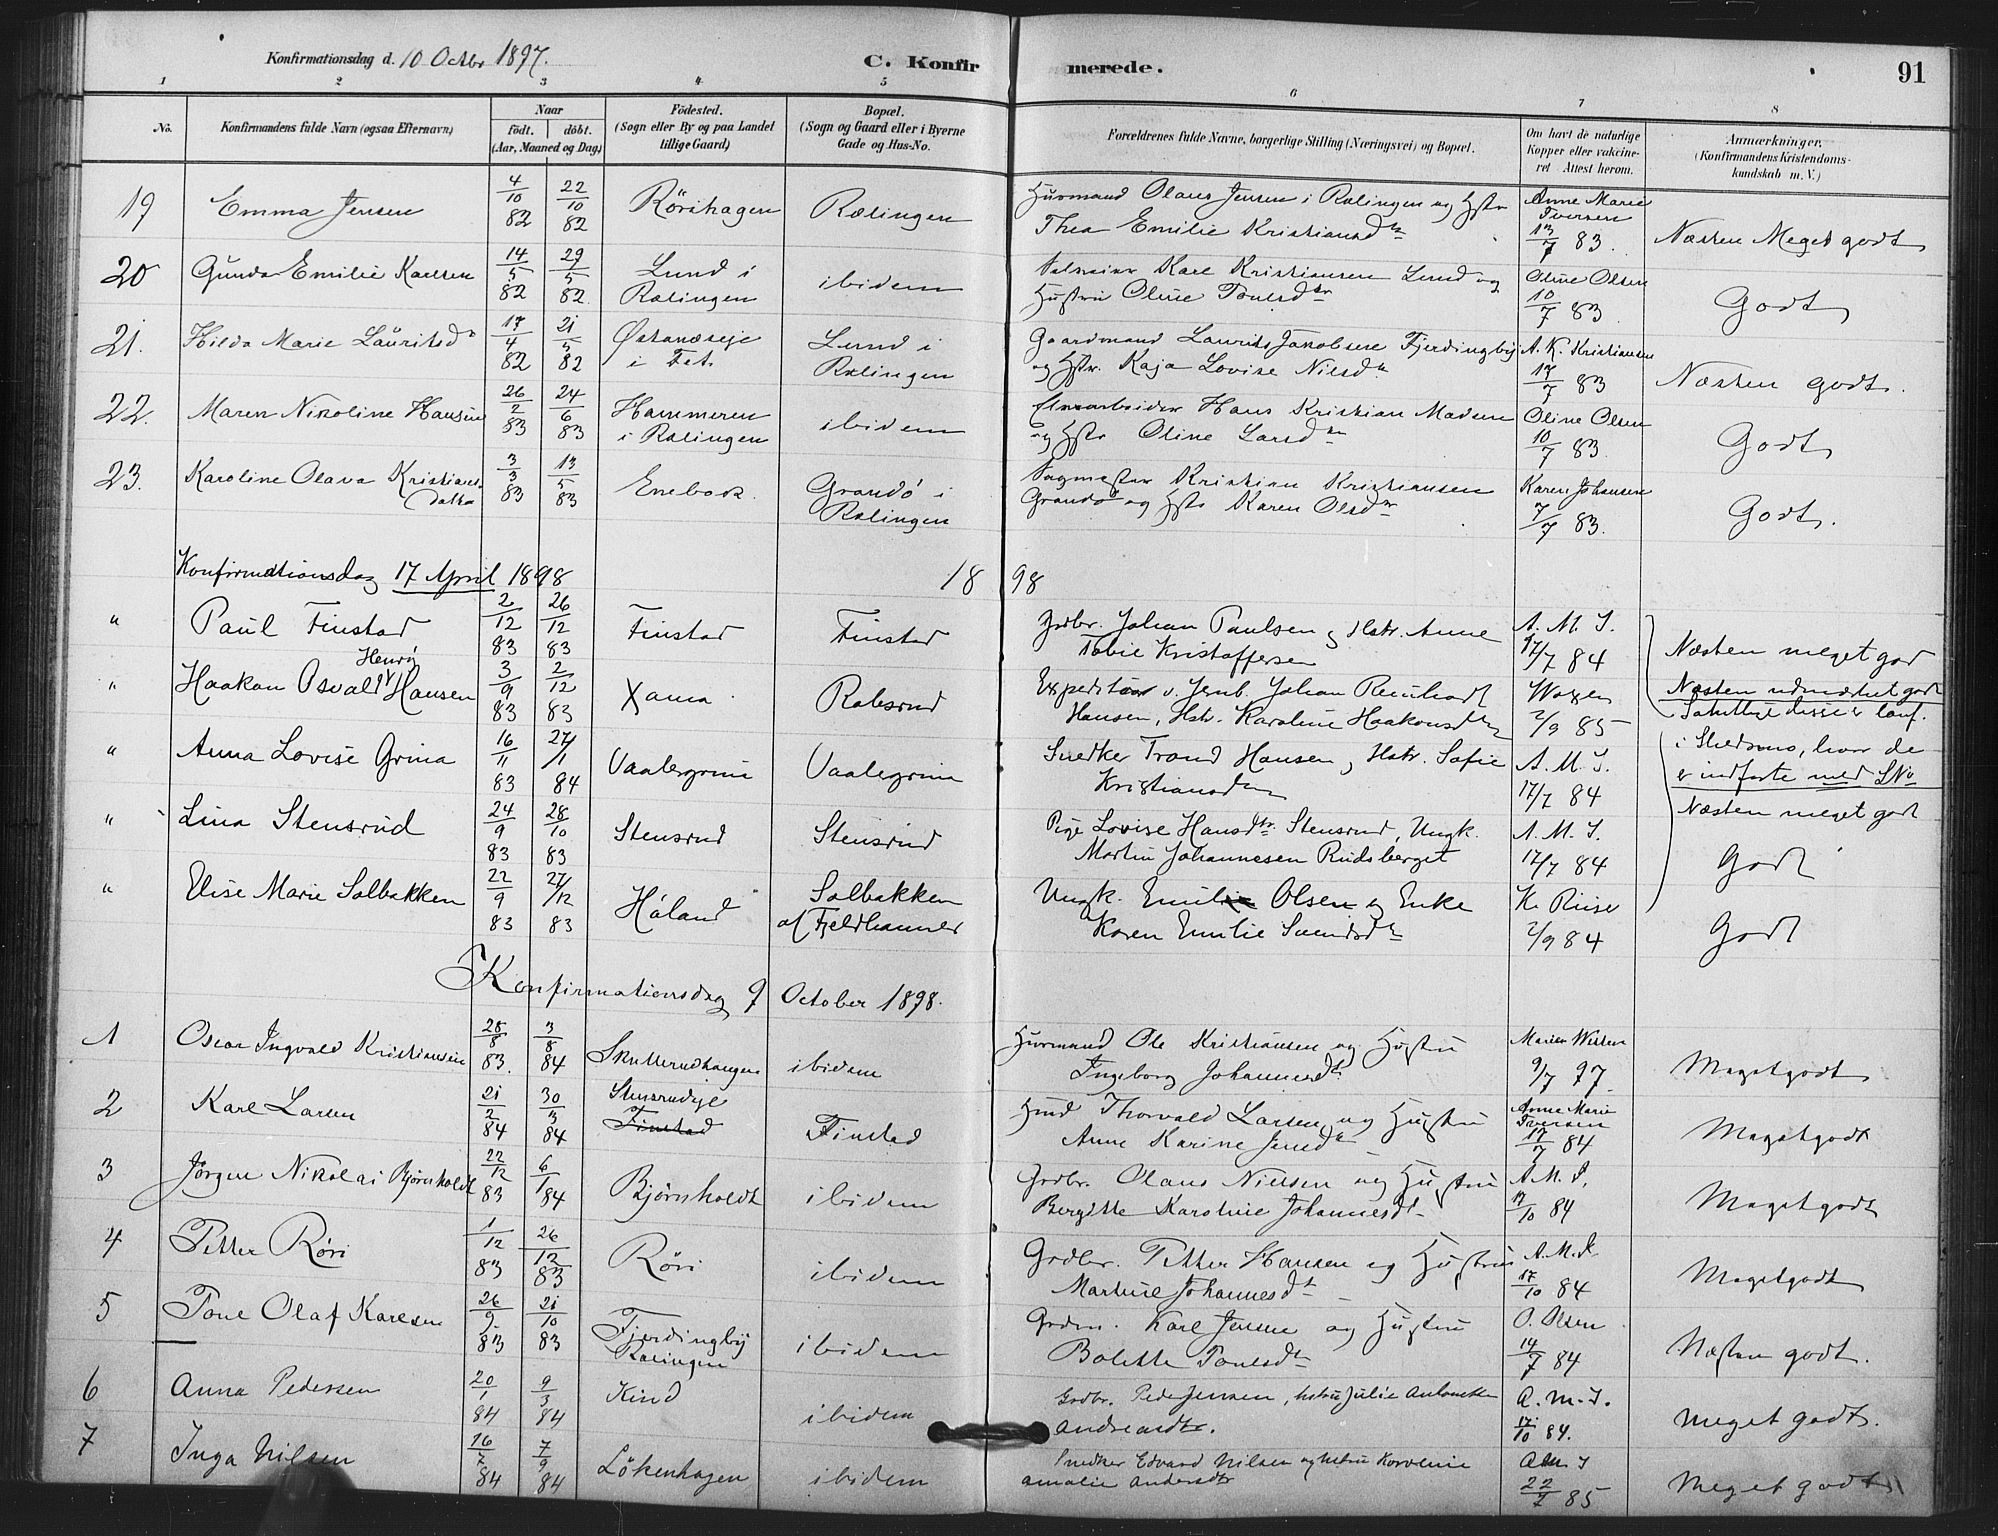 Konfirmationsdag d. 10 Octbr 1897.
C. Konfirmerede.
91
1 2 3 4 5 6 7 8
No.
Konfirmandens fulde Navn (ogsaa Efternavn)
Naar
födt. | döbt.
(Aar, Maaned og Dag)
Födested.
(Sogn eller By og paa Landet
tillige Gaard)
Bopæl.
(Sogn og Gaard eller i Byerne
Gade og Hus-No.
Forældrenes fulde Navne, borgerlige Stilling (Næringsvei) og Bopæl.
Om havt de naturlige
Kopper eller vakcine-
ret Attest herom.
Anmærkninger.
(Konfirmandens Kristendoms-
kundskab m. V.)
19 Emma Jensen 4/10 82 22/10 82 Rörihagen Rælingen
Husmand Olaus Jensen i Rælingen og Hstr
Thea Emilie Kristiansdtr
Anne Marie
Iversen
13/7 83.
Næsten Meget godt
20 Gunda Emilie Karlsen 14/5 82 29/5 82 Lund i
Rælingen
ibidem
Karl Kristiansen Lund og
Hustru Oline Tonesdtr
Oline Olsen
10/7 83
Godt
21. Hilda Marie Lauritsdtr 17/4 82 21/5 82 Østanæseje
i Fet.
Lund i
Rælingen
Gaardmand Laurits Jakobsen Fjerdingby
og Hstr. Kaja Lovise Nilsdtr
A. K. Kristiansen
17/7 83
Næsten godt.
22. Maren Nikoline Hansen 26/2 83 24/6 83 Hammeren
i Rælingen
ibidem
Hans Kristian Madsen
og Hstr Oline Larsdtr
Oline Olsen
10/7 83
Godt
23. Karoline Olava Kristians-
datter
3/3 83 13/5 83 Enebak Grandö i
Rælingen
Sagmester Kristian Kristiansen
Grandö og Hstr Karen Olsdtr
Karen Johansen
7/7 83.
Godt.
Konfirmationsdag 17 April 1898
18 98
" Paul Finstad 2/12 83 26/12 83 Finstad Finstad
Grdbr. Johan Paulsen og Hstr. Anne
Tobie Kristoffersen
A. M. I.
17/7 84
Næsten meget god
" Haakon Osvald Henry Hansen 3/9 83 2/12 83 Xania Robsrud
Expeditør v. Jernb. Johan Reinhardt
Hansen, Hstr. Karoline Haakonsdtr
2/9 85
Næsten udmærket godt
Samtlige disse er konf.
i Skedsmo, hvor de
er indførte med LNo
" Anna Lovise Grina 16/11 83 27/1 84 Vaalergrini Vaalegrini
Snedker Trond Hansen, Hstr. Sofie
Kristiansdtr
A. M. I.
17/7 84
Næsten meget godt
" Lina Stensrud 24/9 83 28/10 83 Stensrud Stensrud
Pige Lovise Hansdtr. Stensrud, Ungk.
Martin Johannesen Rudsberget
A. M. I.
17/7 84
Godt
" Elise Marie Solbakken 22/9 83 27/12 83 Höland Solbakken
af Fjeldhammer
Ungk. Emil Olsen og Enke
Karen Emilie Svendsdtr
K. Riiser
2/9 84
Godt
Konfirmationsdag 9 October 1898.
1 Oscar Ingvald Kristiansen 28/8 83. 3/8 84 Skullerudhaugen ibidem
Husmand Ole Kristiansen og Hustru
Ingeborg Johannesdtr
9/7 97.
Megetgodt
2 Karl Larsen 21/2 84 30/3 84 Stensrudeje
Finstad
Finstad
Hmd Thorvald Larsen og Hustru
Anne Karine Jensdtr
Anne Marie
Iversen
17/7 84
Megetgodt
3 Jörgen Nikolai Bjørnholdt 22/12 83 6/1 84 Bjørnholdt ibidem
Grdbr. Olaus Nielsen og Hustru
Bergitte Karoline Johannesdt
A. M. I.
17/10 84
Megetgodt
4 Petter Röri 1/12 83 26/12 83 Röri ibidem
Grdbr. Petter Hansen og Hustru
Martine Johannesdt
A. M. I.
17/10 84
Megetgodt
5 Tone Olaf Karlsen 26/9 83 21/10 83 Fjerdingby
Rælingen
ibidem
Grdm. Karl Jensen og Hustru
Bolette Tonesdtr
O. Olsen
14/7 84
Næsten godt.
6 Anna Pedersen 20/1 84 9/3 84 Kind ibidem
Grdbr. Peder Jensen, hstru Julie Antonette
Andreasdtr.
A. M. I.
17/10 84.
Meget godt.
7 Inga Nilsen 16/7 84 7/9 84 Lökenhagen ibidem
Snedker Edvard Nilsen og hstru
Amalie Andersdtr
AMI
22/7 85
Meget godt